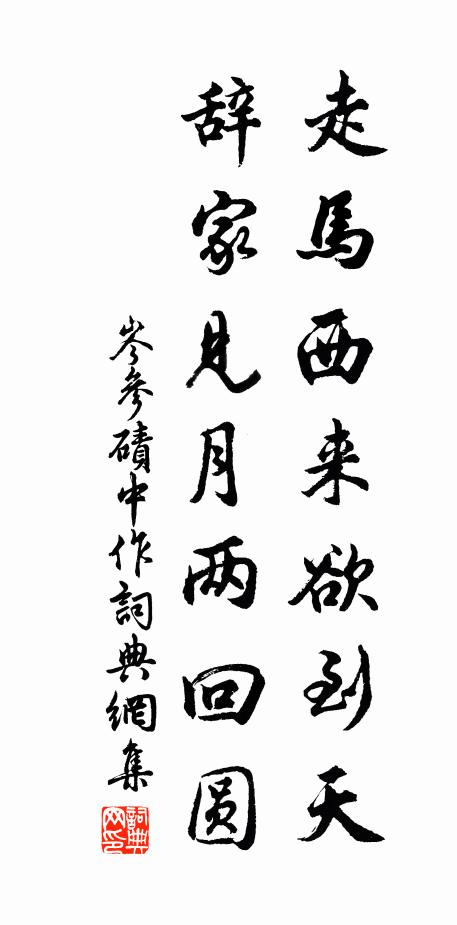 走馬西来欲到天
辞家見月两回圆
岑參磧中作詞典網集
詞典网印